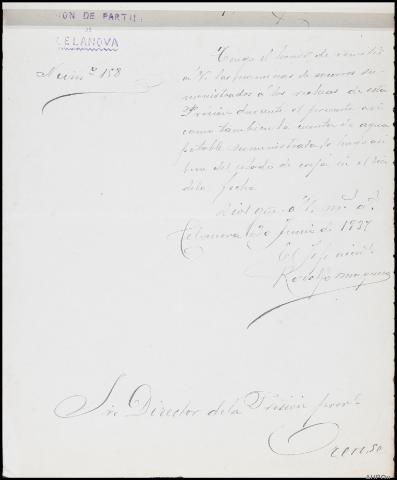 ON DE PARTI
DE
CELANOVA
Num.º 158
Tengo el honor de remitir
á V. las nominas de socorros su-
ministrados á los reclusos de esta
Prisión durante el presente
como tambien la cuenta de agua
potable suministrada, lo
del estado de caja en el día
de la fecha
Dios gue. á V. m.s a.s
Celanova Junio de 1897
El Jefe
Rodolfo
Sr. Director de la Prisión prov.l
Orense